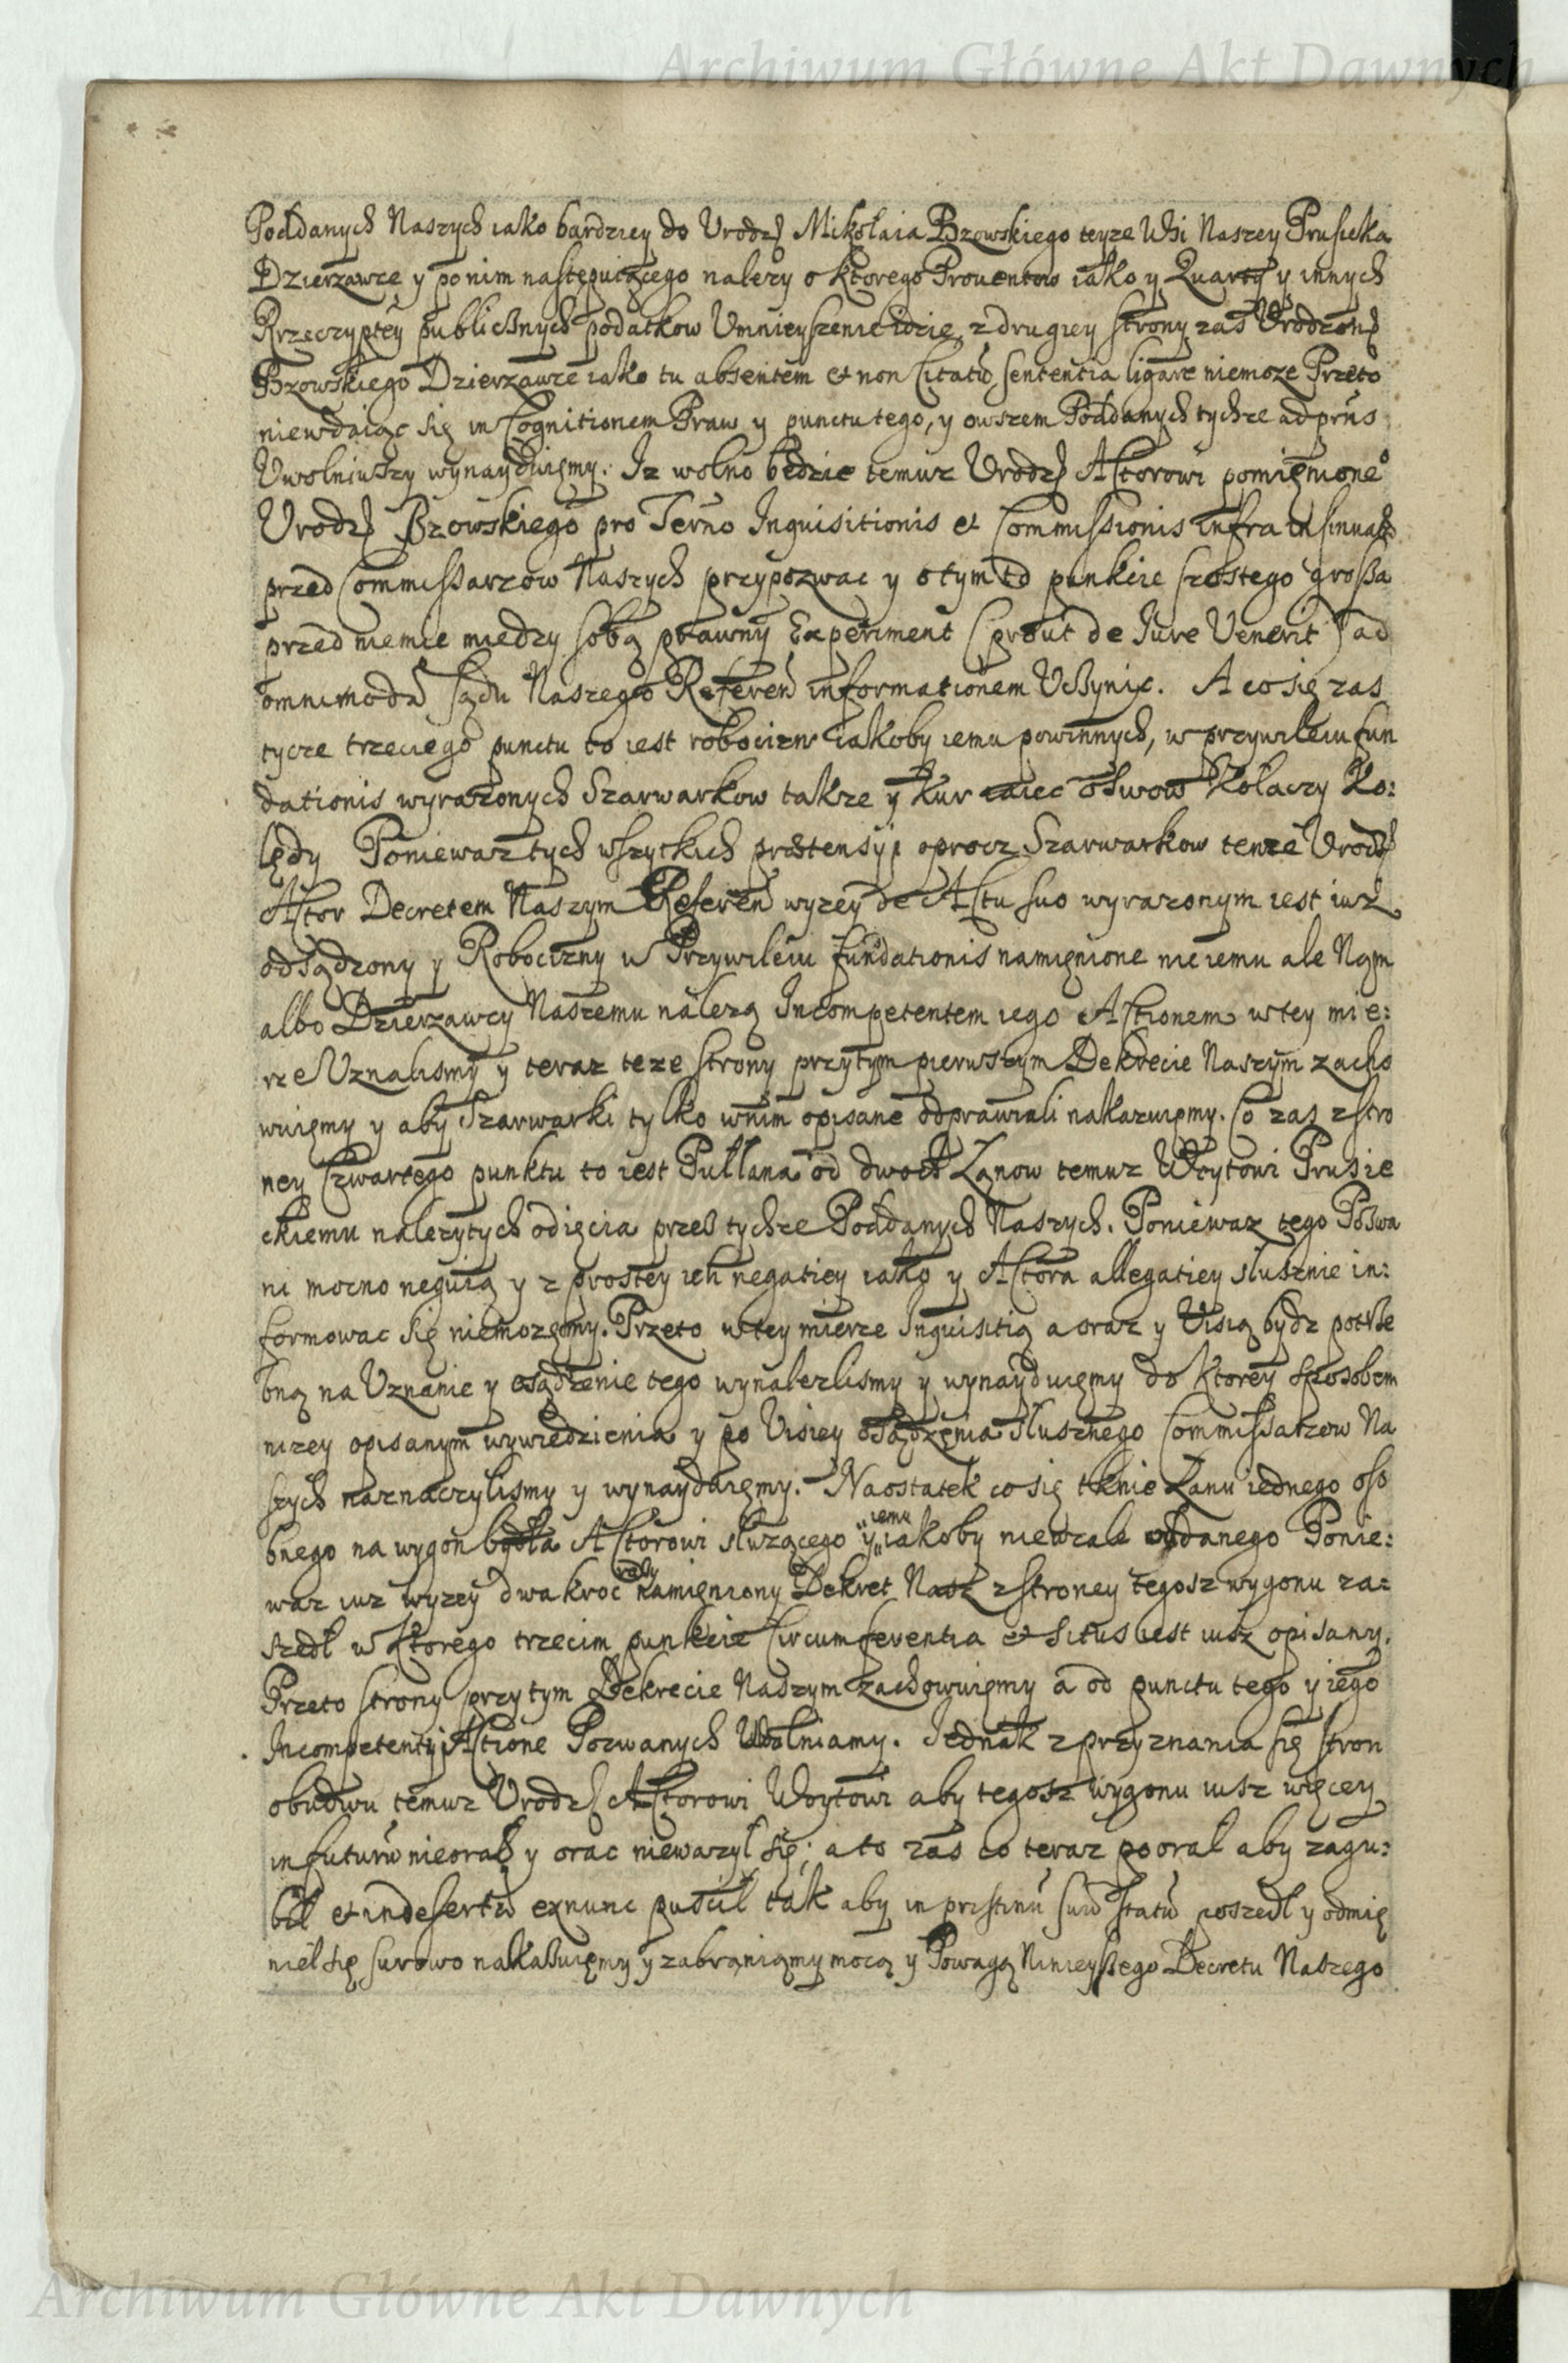 Archiwum Główne Akt Dawnych
Poddanych Naszych iako bardziey do Urodz Mikołaia Bzowskiego teyze Wsi Naszey Prusieka
Dzierzawce y ponim następuiącego nalezy o ktorego Prouentow iako y Quarty y innych
Rzeczyptey publicßnych podatkow Umnieyszenie idzie, z drugiey strony zas Urodzone
Bzowskiego Dzierzawce iako tu absentem et non Citatũ sententia ligare niemoze Przeto
niewdaiąc się in Cognitionem Praw y punctu tego, y owszem Poddanych tychze ad prũs
Uwolniwszy wynayduięmy. Iz wolno będzie temuz Urodz Actorowi pomięnione
Urodz Bzowskiego pro Terño Inquisitionis et Commissionis infra insinuatt
przed Commissarzow Naszych przypozwac y o tym to punkcie szostego grossa
przed niemie miedzy sobą prawny Experiment (prout de Iure Venerit) ad
omnimodã sądu Naszego Referen informationem Uczynic. A co się zas
tycze trzeciego punctu to iest robocizn iakoby iemu powinnych, w przywileiu fun
dationis wyrazonych Szarwarkow takze y Kur iaiec Osmow Kołaczy Ko:
lędy Poniewaz tych wszytkich prætensÿi oprocz Szarwarkow tenze Urodz
Actor Decretem Naszym Referen wyzey de Actu suo wyrazonym iest iuz
odsądzony y Robocizny w Przywileiu fundationis namięnione nie iemu ale Nąm
albo Dzierzawcy Naszemu nalezą Incompetentem iego Actionem w tey mie:
rze Uznalismy y teraz teze strony przytym pierwszym Dekrecie Naszym zacho
wuięmy y aby Szarwarki tylko wnim opisane odprawiali nakazuięmy. Co zas z stro
ney Czwartego punktu to iest Pułłana od dwoch Łanow temuz Woytowi Prusie
ckiemu nalezytych odięcia przez tychze Poddanych Naszych. Poniewaz tego Pozwa
ni mocno neguią y z prostey ich negatiey iako y Actora allegatiey slusznie in:
formowac się niemozęmy. Przeto w tey mierze Inquisitią a oraz y Visią bydz potrze
bną na Uznanie y osądzenie tego wynalezlismy y wynayduięmy do ktorey sposobem
nizey opisanym wywiedzienia y po Visiey osądzęnia slusznego Commissarzow Na
szych naznaczylismy y wynayduięmy. Naostatek co się tknie Łanu iednego oso
bnego na wygon bydła Actorowi sluzącego y iemu iakoby niewcale oddanego Ponie:
waz iuz wyzey dwakroc namięniony Dekret Nasz z stroney tegosz wygonu za:
szedł w ktorego trzecim punkcie Circumferentia et Situs iest iusz opisany.
Przeto strony przy tym Dekrecie Naszym zachowuięmy a od punctu tego y iego
Incompetenti Actione Pozwanych Uwalniamy. Iednak z przyznania się stron
obudwu temuz Urodz Actorowi Woytowi aby tegosz wygonu iusz więcey
in futurũ nieorał y orac niewazył się; a to zas co teraz poorał aby zagu:
bił et in desertũ exnunc puscił tak aby in pristinũ suũ statũ poszedł y odmię
nił się surowo nakazuięmy y zabraniąmy mocą y Powagą Ninieyszego Decretu Naszego
Archiwum Główne Akt Dawnych